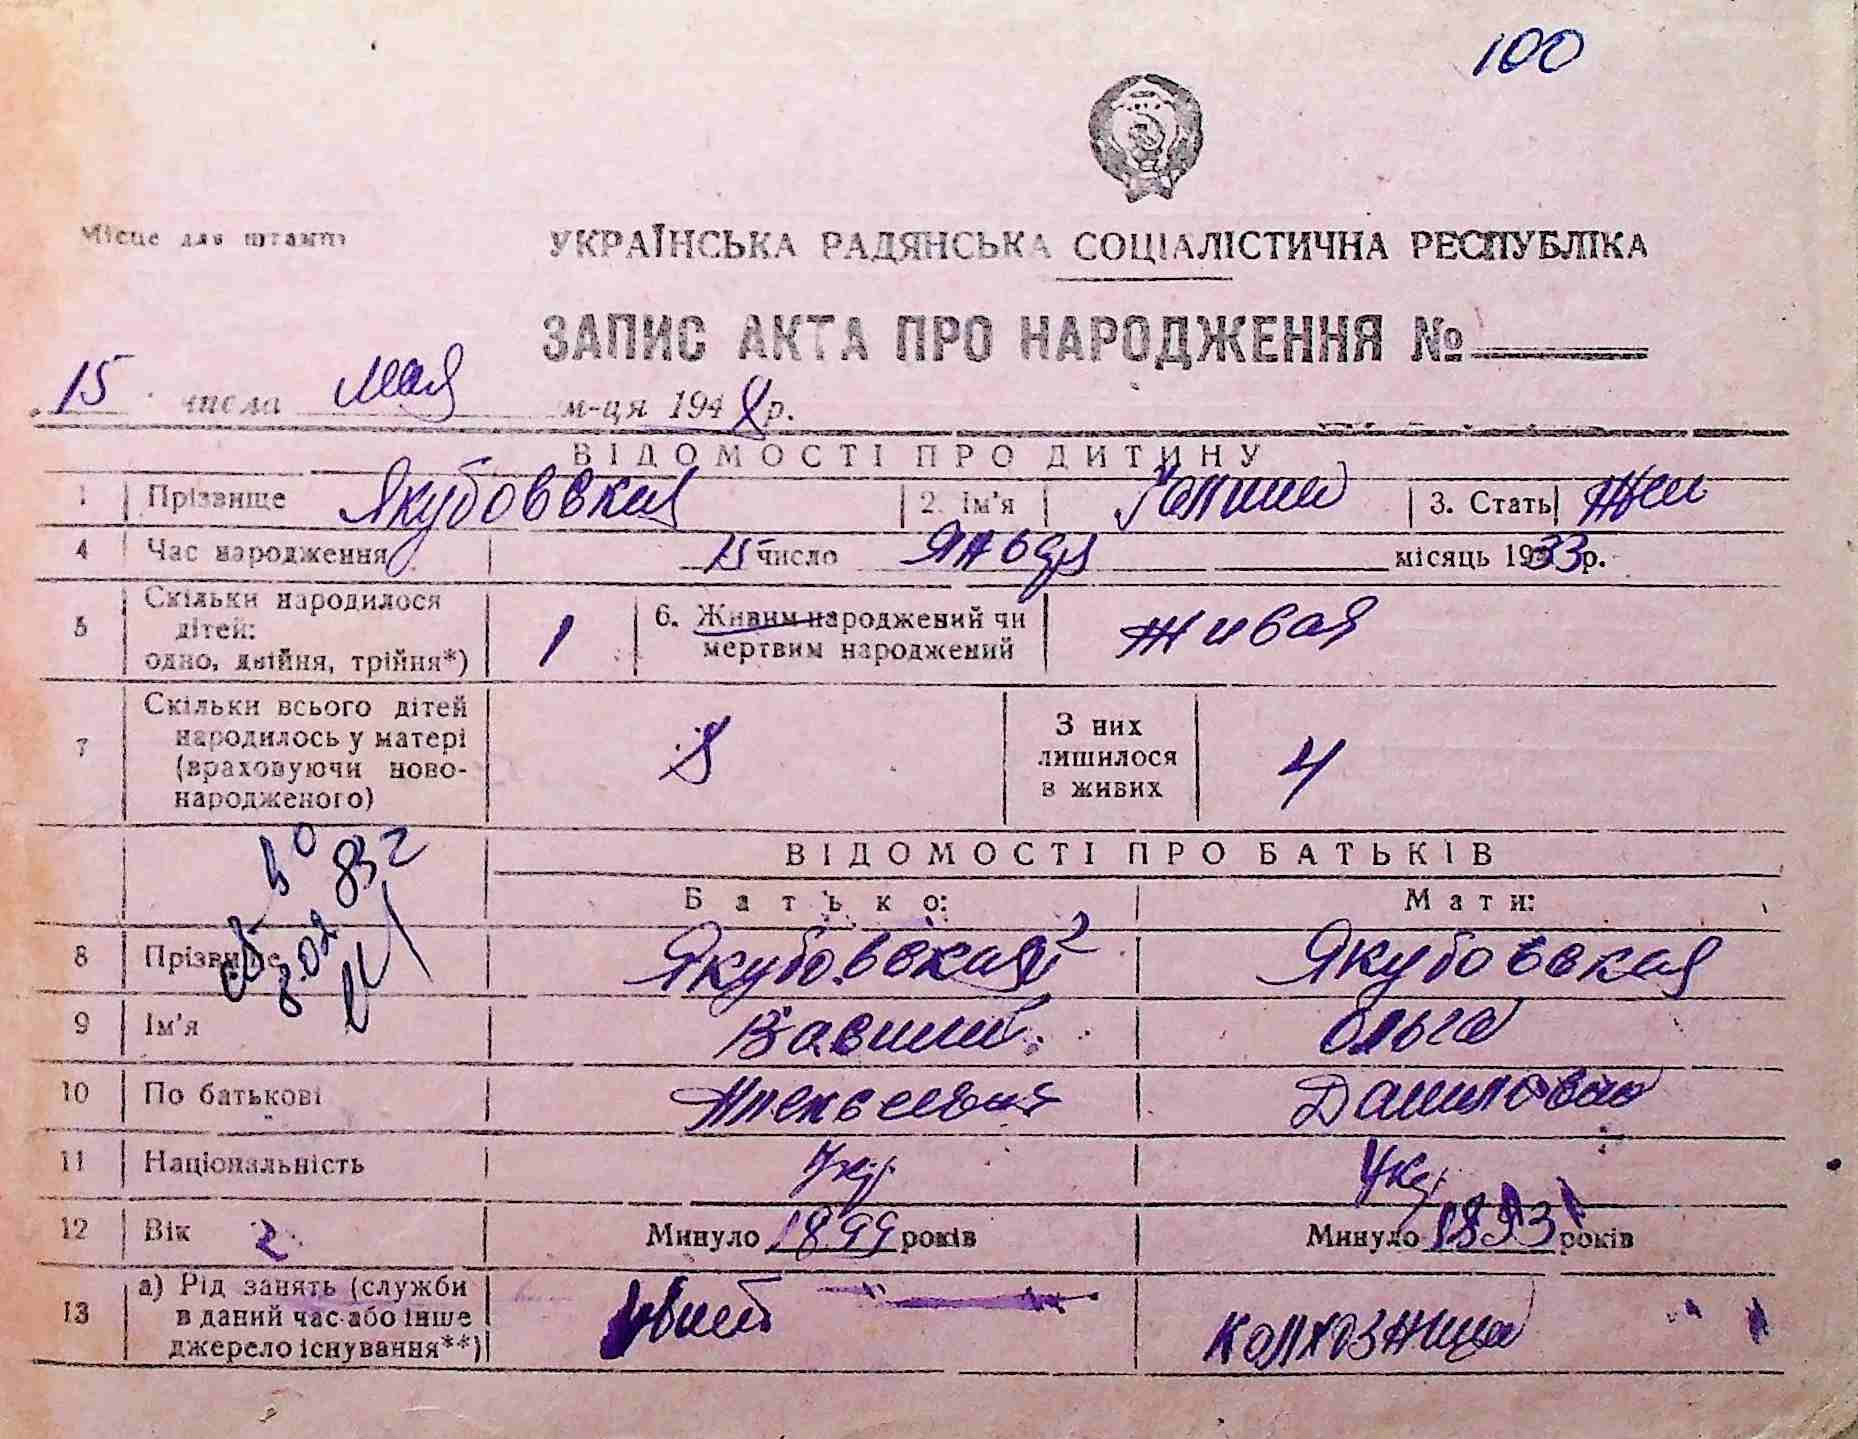 100
Місце для штампу
УКРАЇНСЬКА РАДЯНСЬКА СОЦІАЛІСТИЧНА РЕСПУБЛІКА
ЗАПИС АКТА ПРО НАРОДЖЕННЯ №
15 числа мая м-ця 194 р.
ВІДОМОСТІ ПРО ДИТИНУ
1 Прізвище Якубовская 2. Ім'я 3. Стать Жен
4 Час народження 15 число января місяць 1933 р.
5 Скільки народилося дітей: одно, двійня, трійня*) 1 6. Живим народжений чи мертвим народжений живая
7 Скільки всього дітей народилось у матері (враховуючи новонародженого) 8 З них лишилося в живих 4
ВІДОМОСТІ ПРО БАТЬКІВ
Батько: Мати:
8 Прізвище Якубовская Якубовская
9 Ім'я Ольга
10 По батькові Алексеевич Даниловна
11 Національність Укр. Укр.
12 Вік 2 Минуло 1899 років Минуло 1893 років
13 а) Рід занять (служби в даний час або інше джерело існування**) убит колхозница